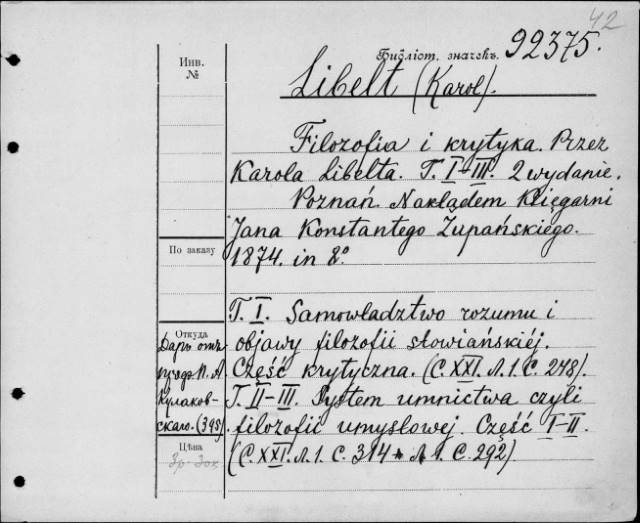 42
Библіот. значекъ. 92375.
Инв.
№
Libelt (Karol).
Filozofia i krytyka. Przez
Karola Libelta. T. I–III. 2 wydanie.
Poznań. Nakładem Księgarni
Jana Konstantego Żupańskiego.
1874. in 8º
По заказу
T. I. Samowładztwo rozumu i
objawy filozofii słowiańskiéj.
Część krytyczna. (C. XXI. Л. 1. C. 248).
T. II–III. System umnictwa czyli
filozofii umysłowej. Część I–II.
(C. XXI. Л. 1. C. 314 Л. 1. C. 292)
Откуда
Даръ отъ
проф. П. А
Кулаков-
скаго. (395)
Цѣна
3р.